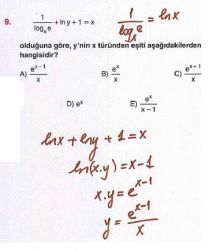 9. 1/logₓe + lny + 1 = x
1/logₓe = lnx
olduğuna göre, y'nin x türünden eşiti aşağıdakilerden
hangisidir?
A) e^(x-1)/x B) e^x/x C) e^(x+1)/x
D) e^x E) e^x/(x-1)
lnx + lny + 1 = x
ln(x.y) = x-1
x.y = e^(x-1)
y = e^(x-1)/x